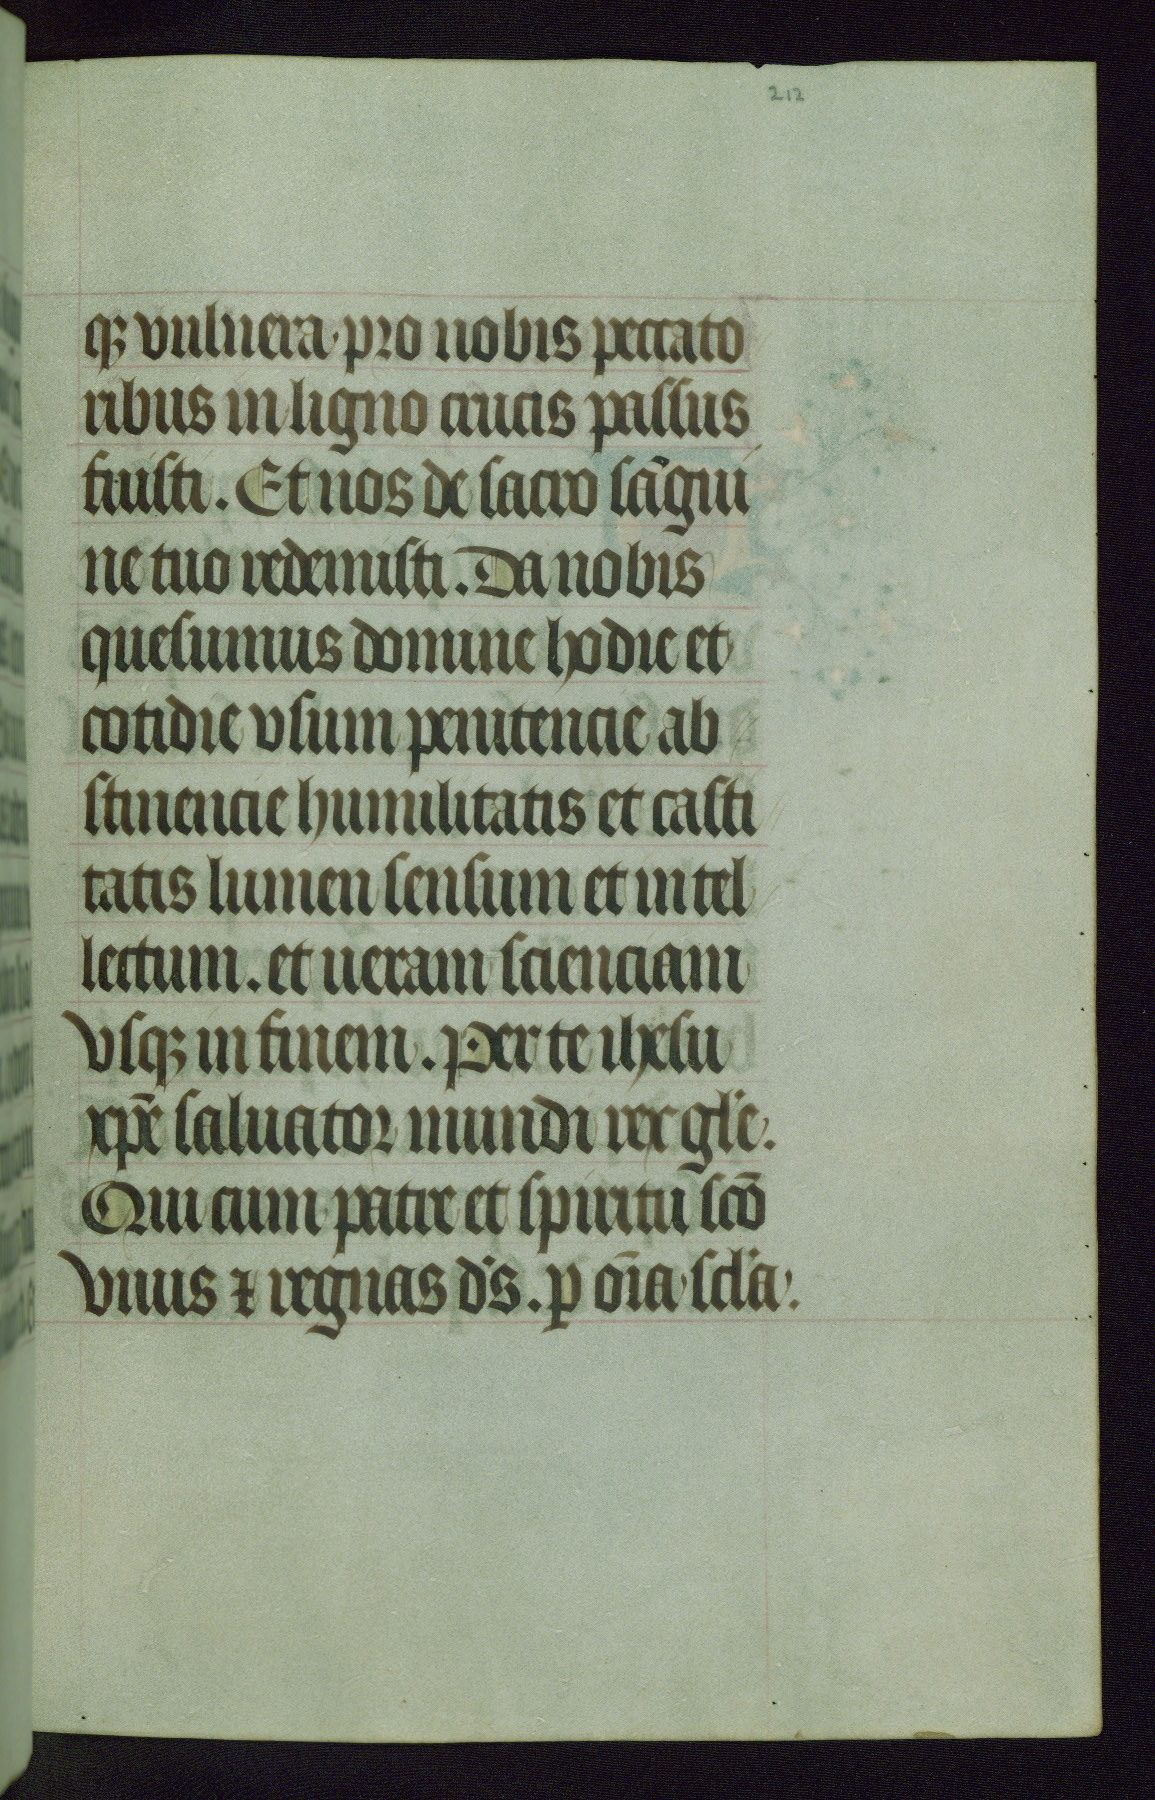 212
qꝫ vulnera pro nobis peccato
ribus in ligno crucis passus
fuisti. Et nos de sacro sāgui
ne tuo redemisti. Da nobis
quesumus domine hodie et
cotidie vsum penitencie ab
stinencie humilitatis et casti
tatis lumen sensum et intel
lectum. et ueram scienciam
vsqꝫ in finem. Per te ihesu
xp̄e saluator mundi rex gl'e.
Qui cum patre et spiritu scō
viuis ⁊ regnas d's. p om̄ia scl'a.